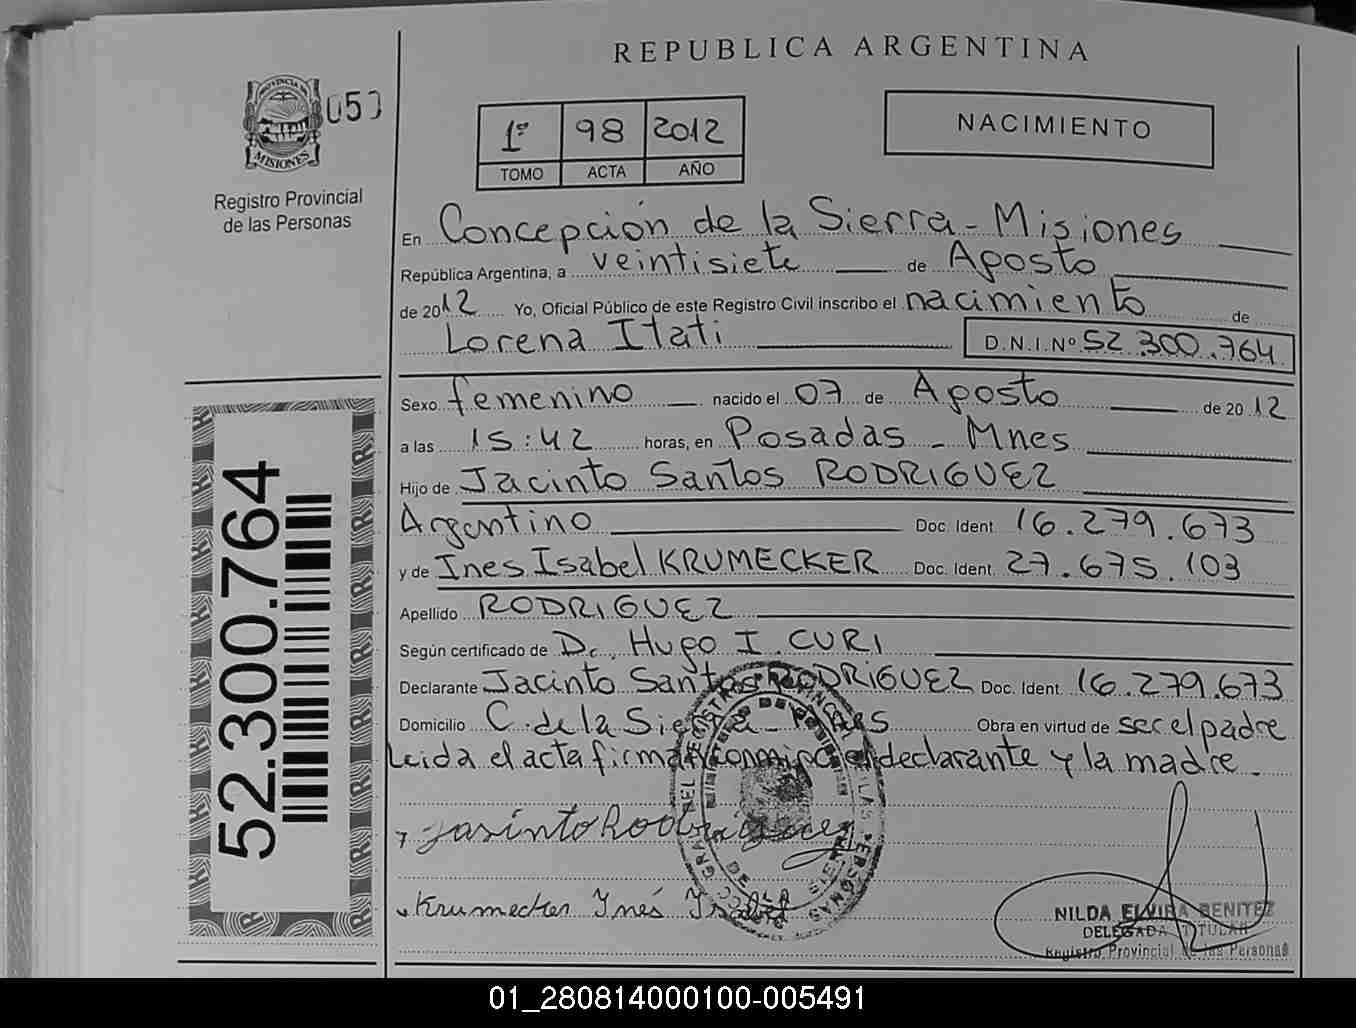 REPUBLICA ARGENTINA
PROVINCIA DE
MISIONES
050
Registro Provincial
de las Personas
1º 98 2012
TOMO ACTA AÑO
NACIMIENTO
En Concepción de la Sierra - Misiones
República Argentina, a veintisiete de Agosto
de 2012 Yo, Oficial Público de este Registro Civil inscribo el nacimiento de
Lorena Itati D.N.I.Nº 52.300.764
Sexo femenino nacido el 07 de Agosto de 2012
a las 15:42 horas, en Posadas - Mnes
Hijo de Jacinto Santos RODRIGUEZ
Argentino Doc. Ident. 16.279.673
y de Ines Isabel KRUMECKER Doc. Ident. 27.675.103
Apellido RODRIGUEZ
Según certificado de Dr. Hugo I. CURI
Declarante Jacinto Santos RODRIGUEZ Doc. Ident. 16.279.673
Domicilio C. de la Sierra - Mnes Obra en virtud de ser el padre
Leida el acta firman conmigo el declarante y la madre.
Jasinto Rodriguez
Krumecker Inés Isabel
NILDA ELVIRA BENITEZ
DELEGADA TITULAR
Registro Provincial de las Personas
52.300.764
01_280814000100-005491